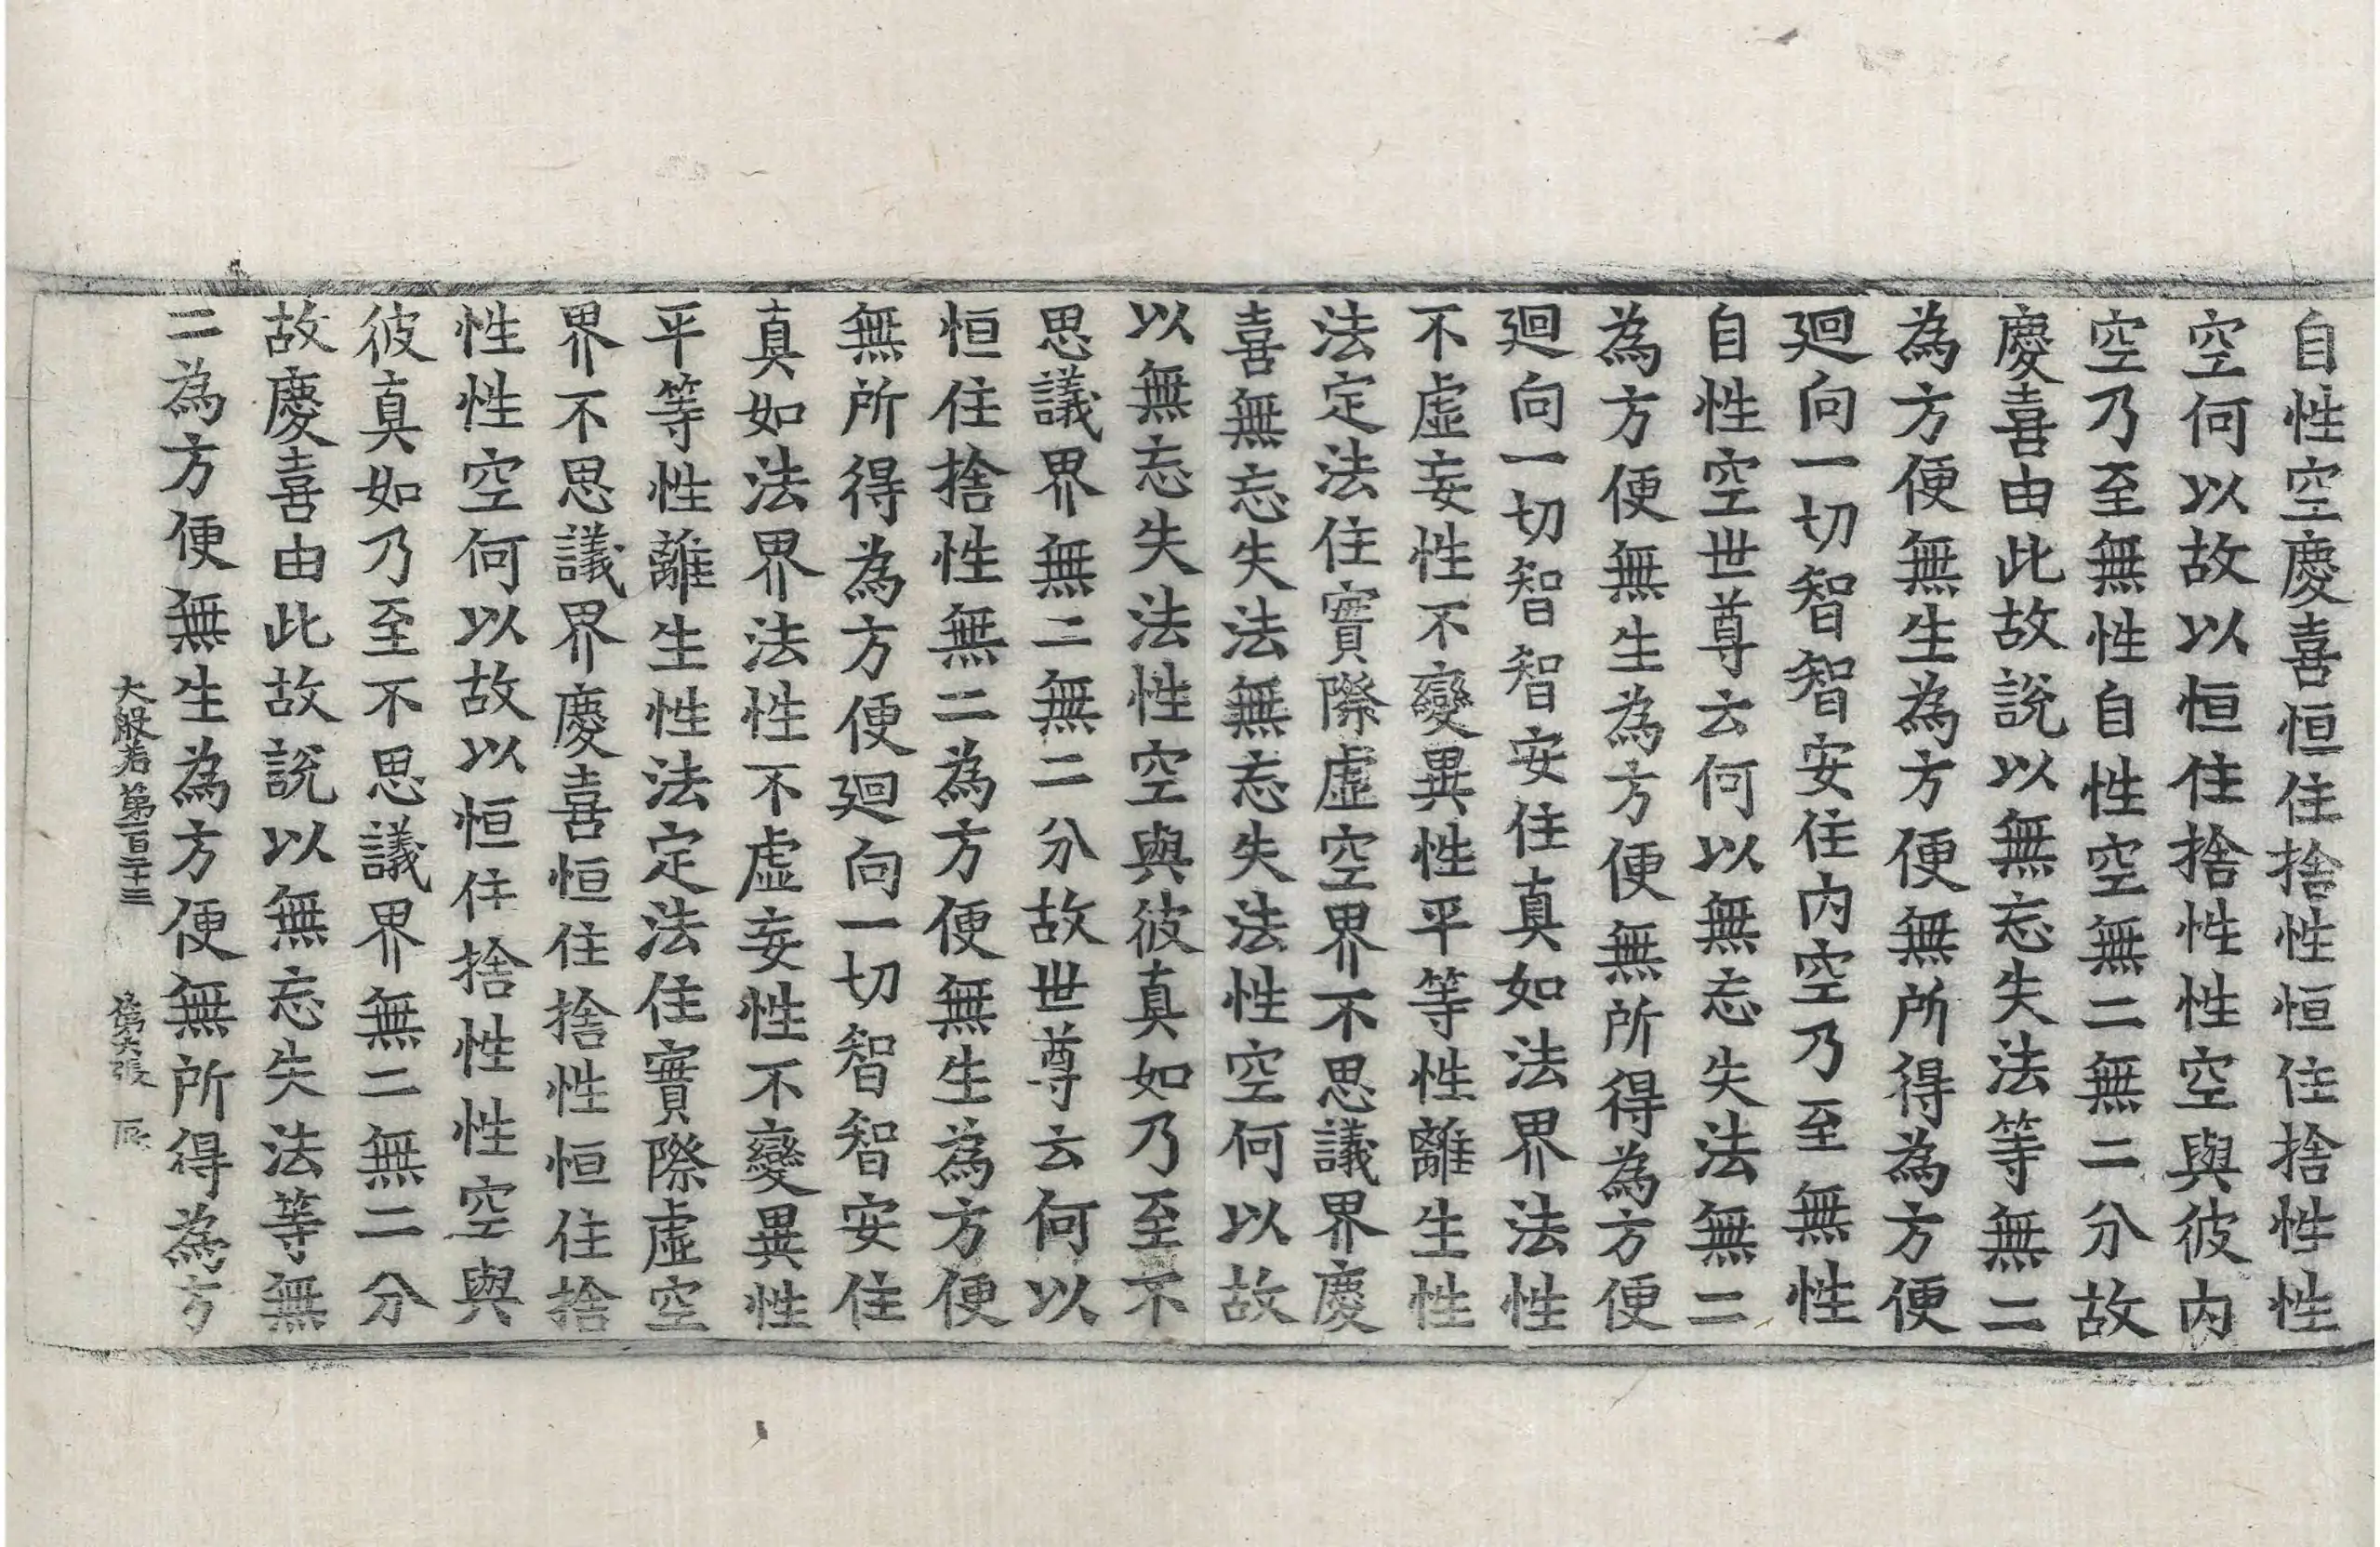 自性空慶喜恒住捨性恒住捨性性
空何以故以恒住捨性性空與彼内
空乃至無性自性空無二無二分故
慶喜由此故說以無忘失法等無二
為方便無生為方便無所得為方便
迴向一切智智安住内空乃至無性
自性空世尊云何以無忘失法無二
為方便無生為方便無所得為方便
迴向一切智智安住真如法界法性
不虛妄性不變異性平等性離生性
法定法住實際虛空界不思議界慶
喜無忘失法無忘失法性空何以故
以無忘失法性空與彼真如乃至不
思議界無二無二分故世尊云何以
恒住捨性無二為方便無生為方便
無所得為方便迴向一切智智安住
真如法界法性不虛妄性不變異性
平等性離生性法定法住實際虛空
界不思議界慶喜恒住捨性恒住捨
性性空何以故以恒住捨性性空與
彼真如乃至不思議界無二無二分
故慶喜由此故說以無忘失法等無
二為方便無生為方便無所得為方
大般若第一百二十三 第六張 辰